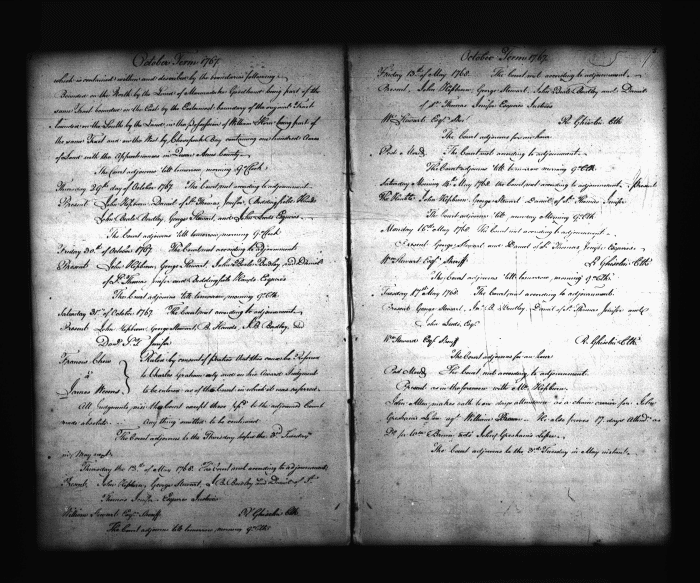 October Term 1767.
which is contained within and described by the boundaries following
Bounded on the North by the Land of being part of the
same Tract bounded on the East by the Easternmost boundary of the original Tract
bounded on the South by the Land in the possession of William being part of
the same Tract and on the West by Chesapeak Bay containing one hundred Acres
of Land with the Appurtenances in Queen Anns County
The Court adjourns till tomorrow morning 9 o'Clock
Thursday 29th day of October 1767. The Court met according to adjournment
Present John Hepburn, Daniel of St. Thomas Jenifer, Benedict
John Beale Bordley, George Steuart, and John Esquires
The Court adjourns till tomorrow, morning 9 o'Clock
Friday 30th of October 1767. The Court met according to adjournment
Present John Hepburn, George Steuart, John Beale Bordley, and Daniel
of St. Thomas Jenifer and Esquires
The Court adjourns till tomorrow, morning 9 o'Clk
Saturday 31st of October 1767. The Court met according to adjournment
Present John Hepburn, George Steuart, B. Hands, J. B. Bordley, and
Danl. St. Ts. Jenifer
Francis
James
Ruled by consent of parties that this cause be referred
to Charles Graham only and on his Award Judgment
to be entered as of the Court in which it was referred
All Judgments in this Court except those to the adjourned Court
were absolute. Any thing omitted to be continued
The Court adjourns to the Thursday before the 3d Tuesday
in May next
Thursday the 12th of May 1768. The Court met according to adjournment
Present John Hepburn, George Steuart, J. B. Bordley and Daniel of St.
Thomas Jenifer Esquires Justices
William Steuart Esqr. Sheriff R Ghiselin Clk
The Court adjourns till tomorrow, morning 9 o'Clk
October Term 1767
Friday 13th of May 1768. The Court met according to adjournment
Present, John Hepburn, George Steuart, John Beale Bordley and Daniel
of St. Thomas Jenifer Esquires Justices
Wm. Steuart Esqr. Sher. R. Ghiselin Clk
The Court adjourns for an hour
Post Merid. The Court met according to adjournment
The Court adjourns till tomorrow morning 9 o'Clk
Saturday Morning 14th May 1768 the Court met according to adjournment. Present
The Honble. John Hepburn, George Steuart, Daniel of St. Thomas Jenifer
The Court adjourns till monday Morning 9 o'Clk
Monday 16th May 1768 The Court met according to adjournment.
Present George Steuart and Daniel of St. Thomas Jenifer Esquires.
Wm. Steuart Esqr. Sheriff R Ghiselin Clk
The Court adjourns till tomorrow, morning 9 o'Clk
Tuesday 17th May 1768 The Court met according to adjournment.
Present George Steuart, Jno. B. Bordley, Daniel of St. Thomas Jenifer and
John Esqr.
Wm. Steuart Esqr. Sheriff R. Ghiselin Clk.
The Court adjourns for an hour
Post Merid. The Court met according to adjournment
Present as in the forenoon with Mr. Hepburn.
John Allen makes oath to one days allowance as a chain carrier for John
Lessee agt. William Brown. He also proves 17 days Attend. as
Do. for Wm. Brown ads. John Lessee.
The Court adjourns to the 3d Tuesday in May instant.